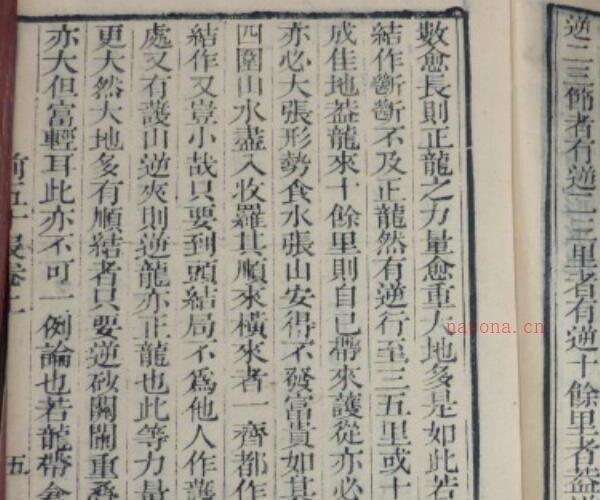 逆二三節者有逆二三里者有逆十餘里者葢
數愈長則正龍之力量愈重大地多是如此若
結作斷斷不及正龍然有逆行至三五里或十
成佳地葢龍來十餘里則自已帶來護從亦必
亦必大張形勢食水張山安得不發富貴如其
四圍山水盡入收羅其順來橫來者一齊都作
結作又豈小哉只要到頭結局不爲他人作護
處又有護山逆夾則逆龍亦正龍也此等力量
更大然大地多有順結者只要逆砂關闌重疊
亦大但富輕耳此亦不可一例論也若龍帶倉
卷二
五
nayona.cn